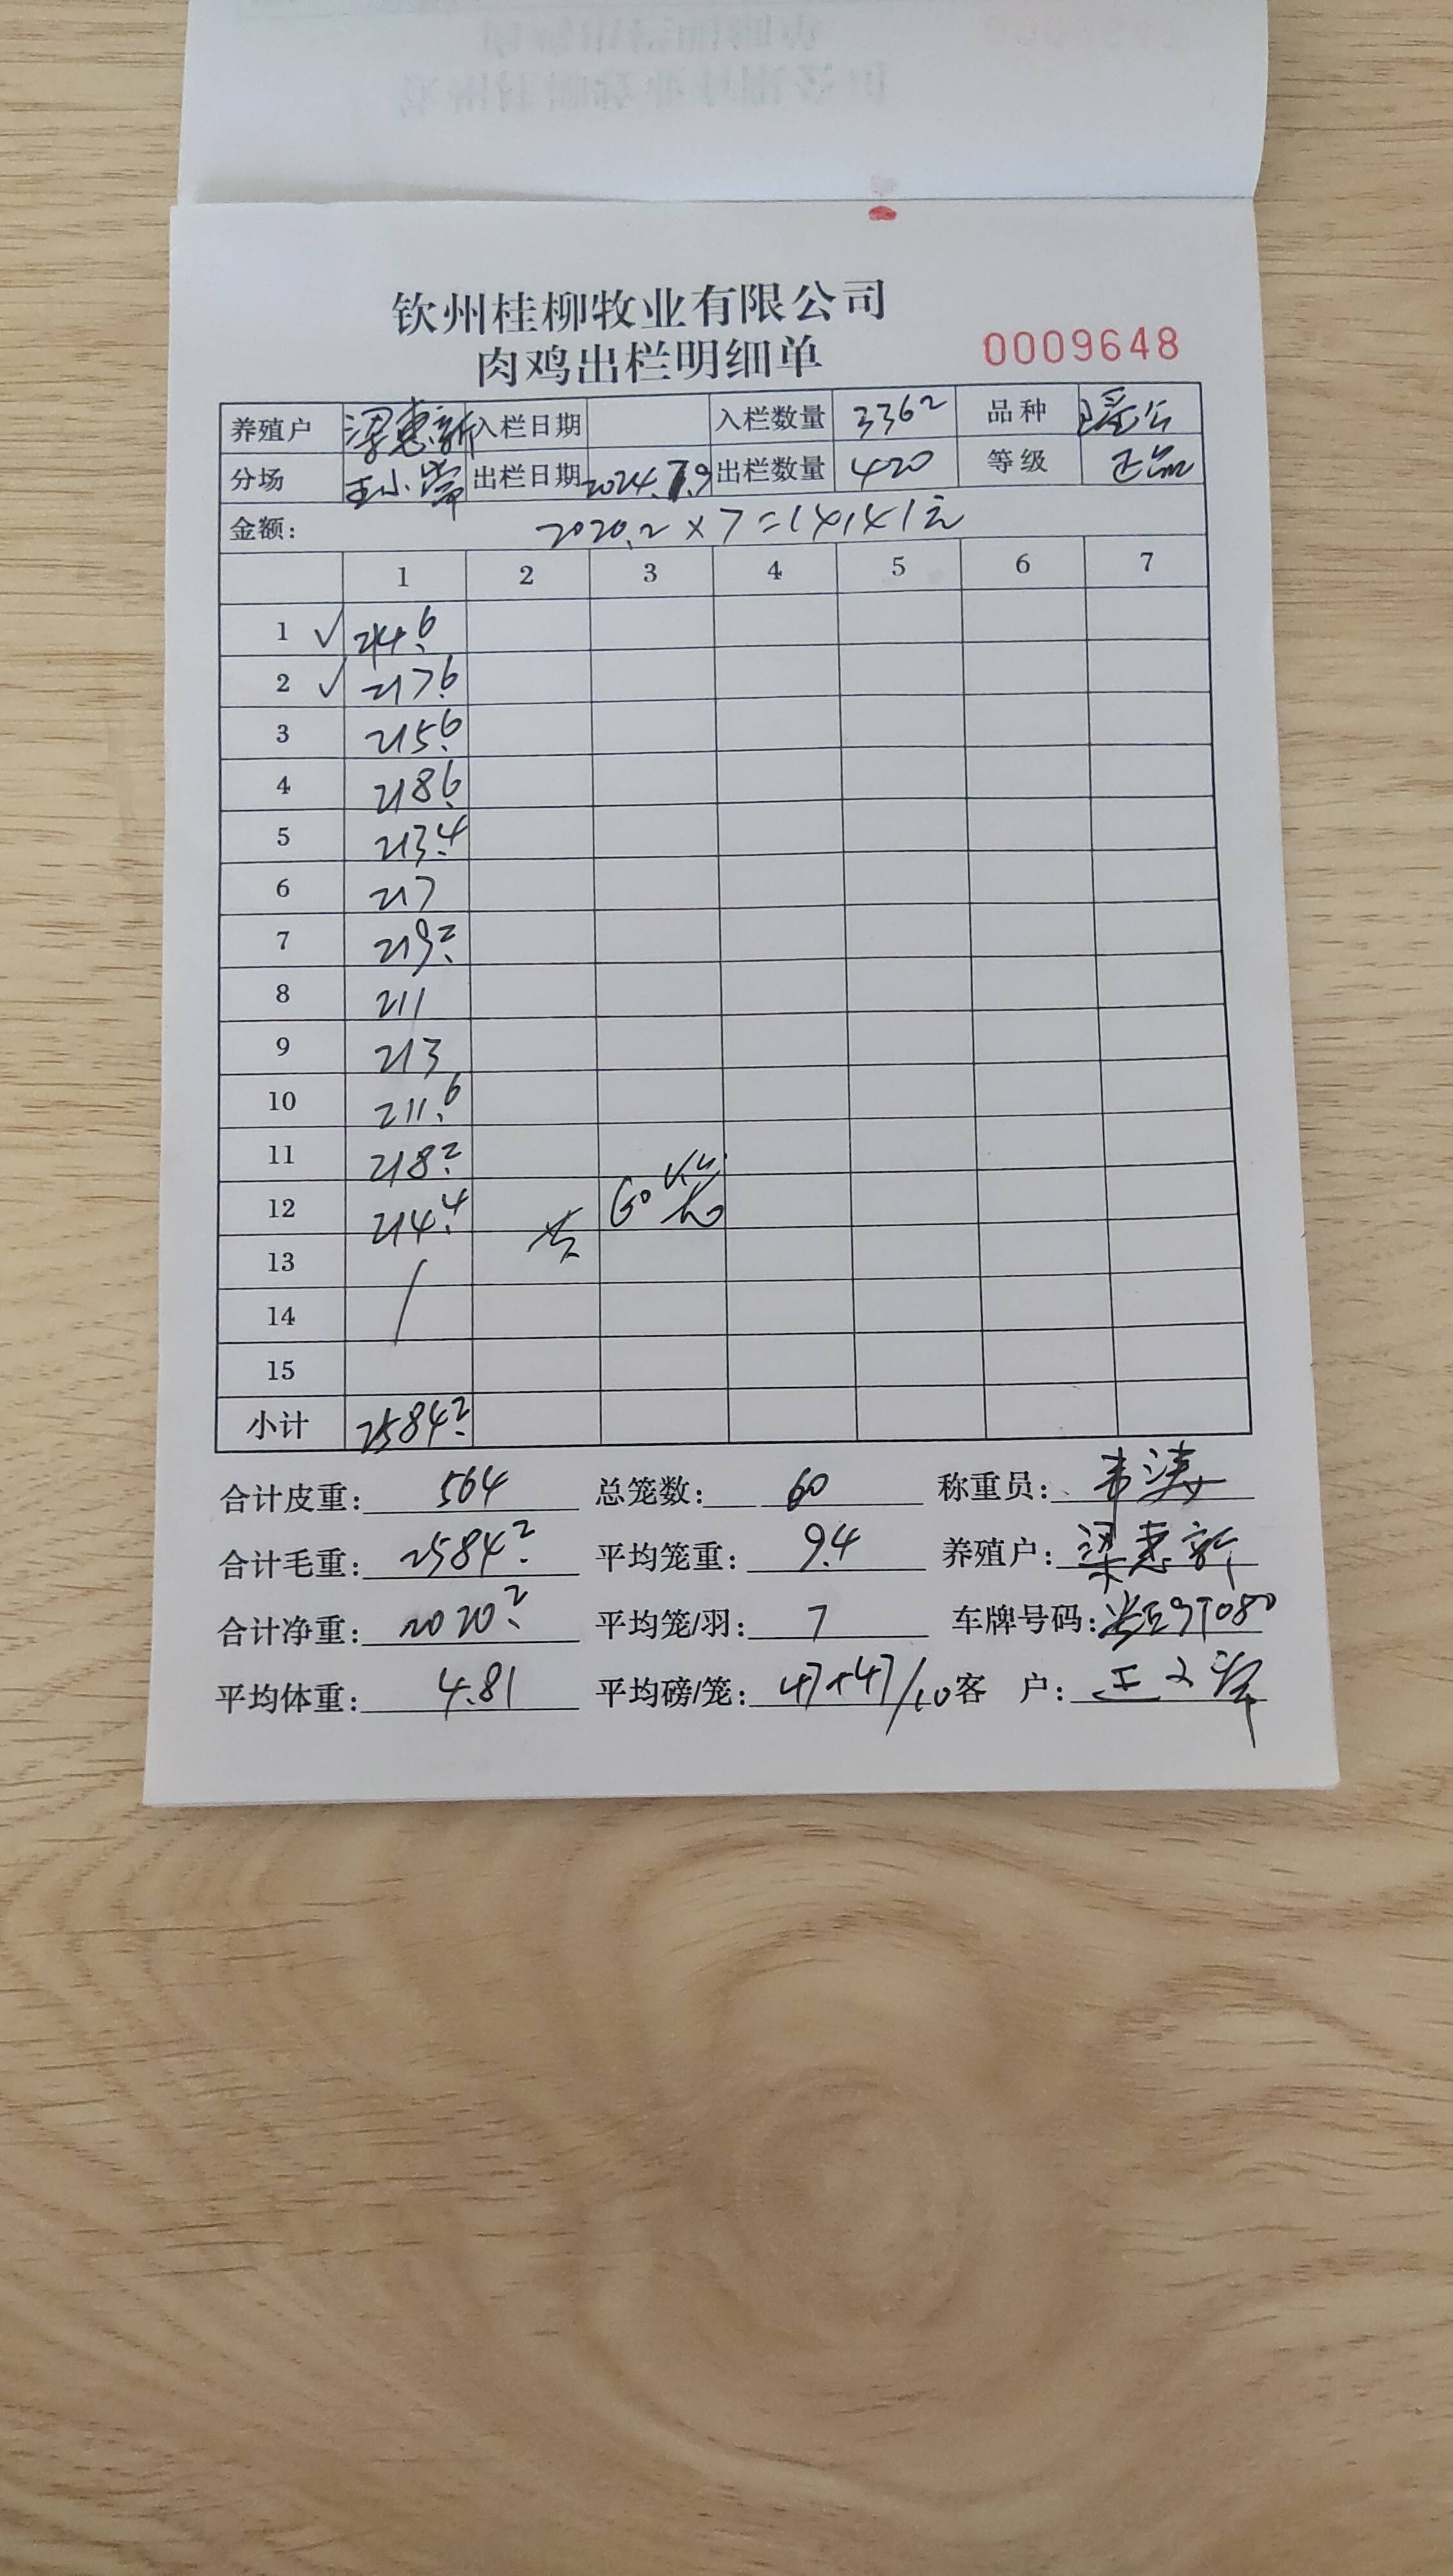 钦州桂柳牧业有限公司
肉鸡出栏明细单 0009648
养殖户 梁惠新 入栏日期 入栏数量 3362 品种 瑶公
分场 出栏日期 2024.7.9 出栏数量 420 等级 正品
金额: 2020.2×7=14141元
1 2 3 4 5 6 7
1 √ 214.6
2 √ 217.6
3 215.6
4 218.6
5 213.4
6 217
7 219.2
8 211
9 213
10 211.6
11 218.2
12 214.4 60
13
14
15
小计 2584.2
合计皮重: 564 总笼数: 60 称重员:
合计毛重: 2584.2 平均笼重: 9.4 养殖户: 梁惠新
合计净重: 2020.2 平均笼/羽: 7 车牌号码:
平均体重: 4.81 平均磅/笼: 47+47/10 客 户: